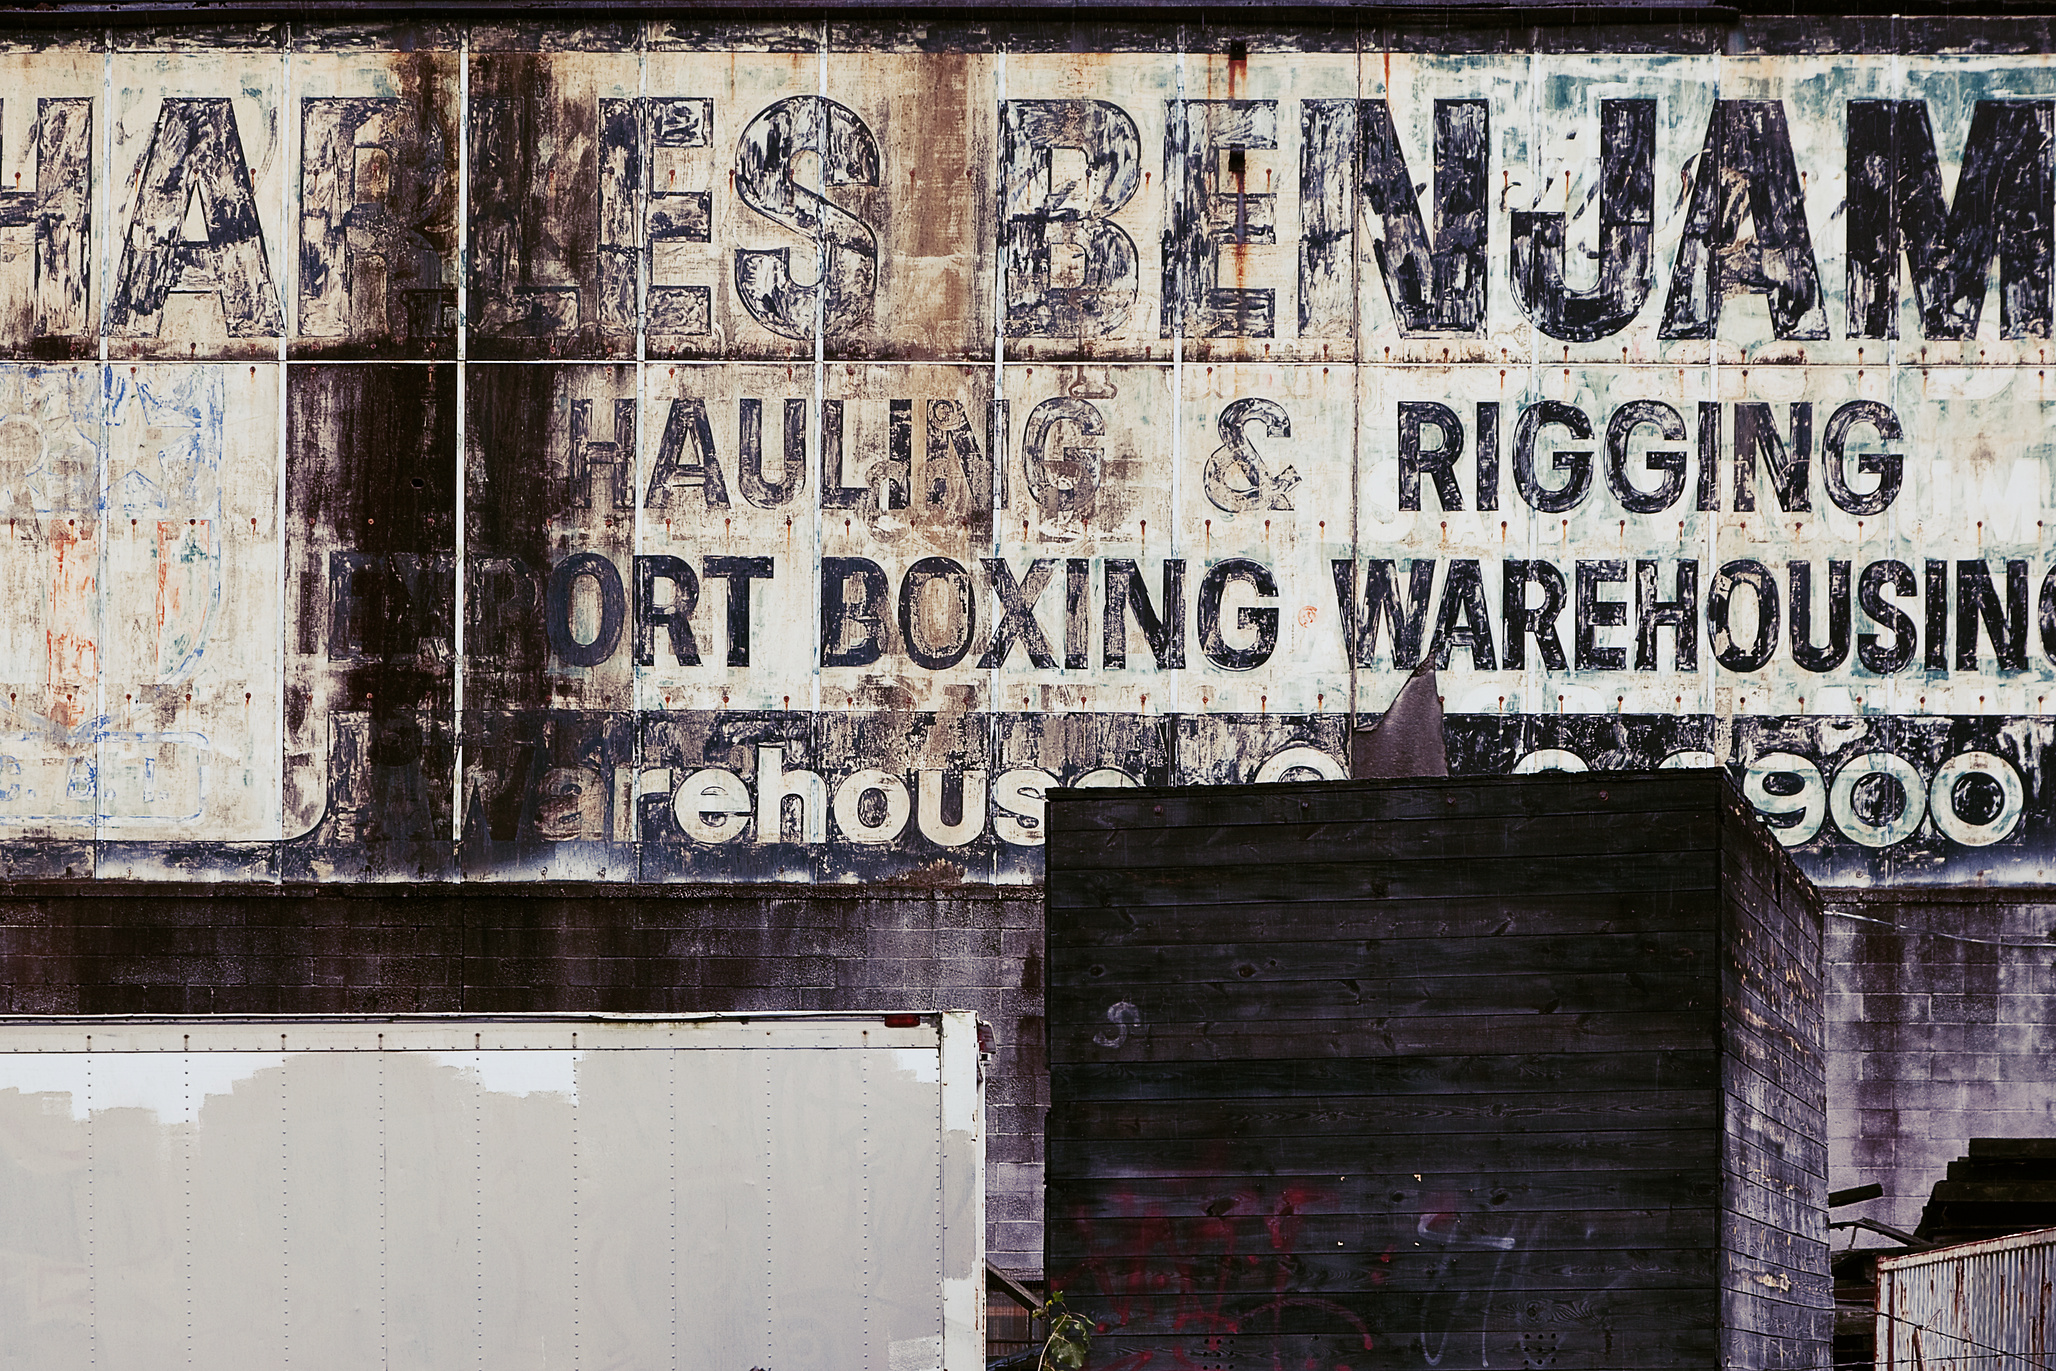 HARLES BENJAM
HAULING & RIGGING
EXPORT BOXING WAREHOUSING
Warehouse 900